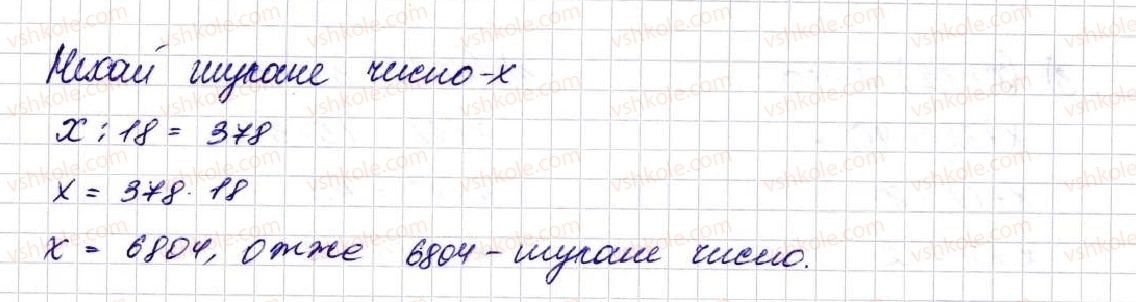 Нехай шукане число - x
x : 18 = 378
x = 378 · 18
x = 6804, отже 6804 - шукане число.